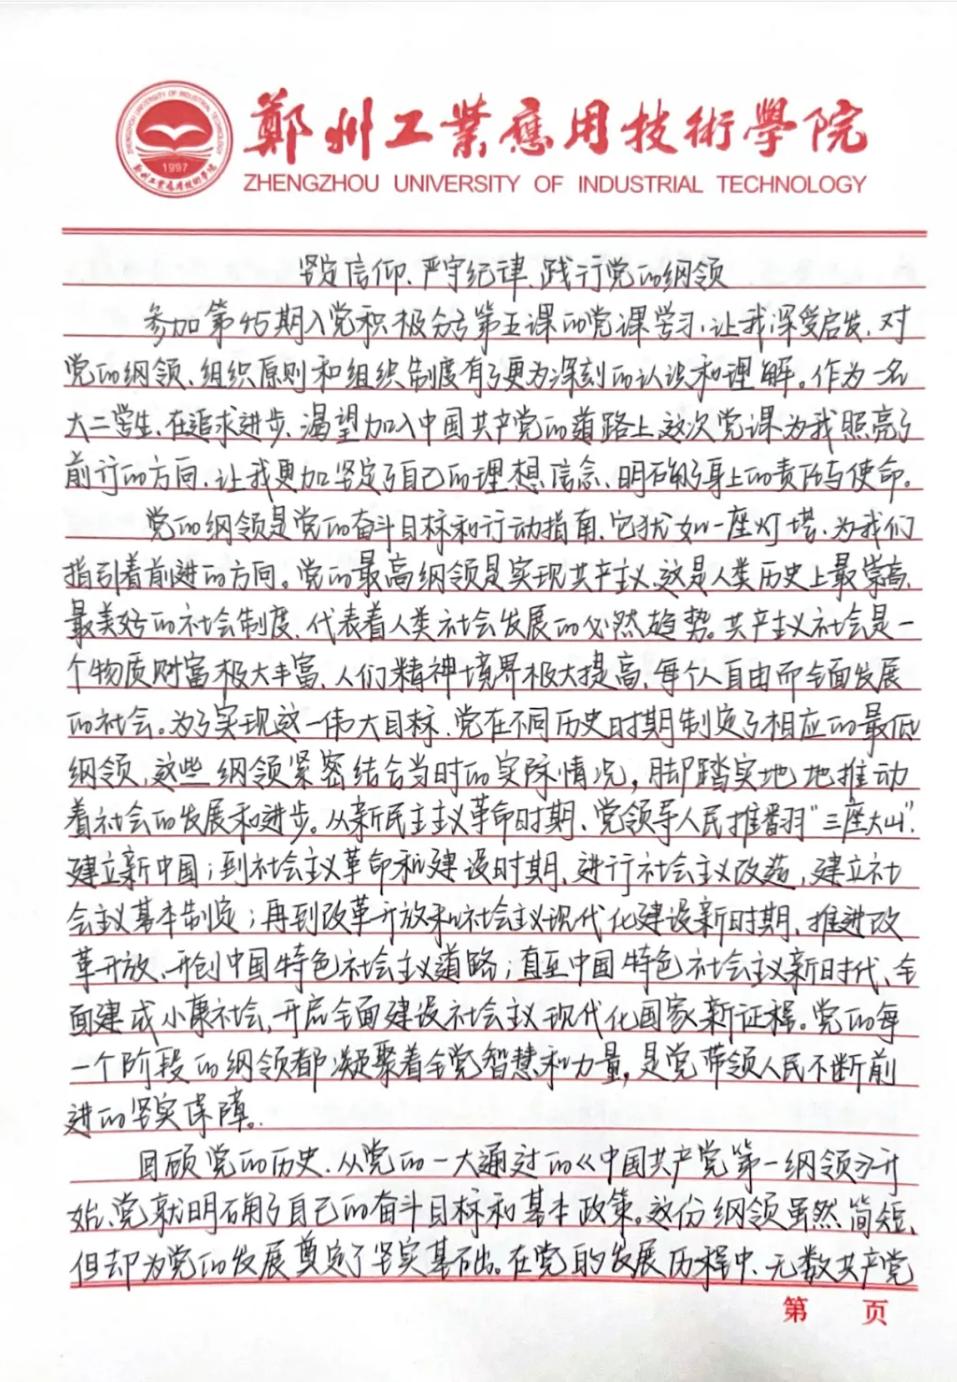 鄭州工業應用技術學院
ZHENGZHOU UNIVERSITY OF INDUSTRIAL TECHNOLOGY
ZHENGZHOU UNIVERSITY OF INDUSTRIAL TECHNOLOGY
1997
郑州工业应用技术学院
坚定信仰、严守纪律、践行党的纲领
参加第45期入党积极分子第五课的党课学习,让我深受启发,对
党的纲领、组织原则和组织制度有了更为深刻的认识和理解。作为一名
大二学生,在追求进步、渴望加入中国共产党的道路上,这次党课为我照亮了
前行的方向,让我更加坚定了自己的理想信念、明确了身上的责任与使命。
党的纲领是党的奋斗目标和行动指南,它犹如一座灯塔,为我们
指引着前进的方向。党的最高纲领是实现共产主义,这是人类历史上最崇高、
最美好的社会制度,代表着人类社会发展的必然趋势。共产主义社会是一
个物质财富极大丰富、人们精神境界极大提高、每个人自由而全面发展
的社会。为了实现这一伟大目标,党在不同历史时期制定了相应的最低
纲领,这些纲领紧密结合当时的实际情况,脚踏实地地推动
着社会的发展和进步。从新民主主义革命时期,党领导人民推翻"三座大山",
建立新中国;到社会主义革命和建设时期,进行社会主义改造,建立社
会主义基本制度;再到改革开放和社会主义现代化建设新时期,推进改
革开放,开创中国特色社会主义道路;直至中国特色社会主义新时代,全
面建成小康社会,开启全面建设社会主义现代化国家新征程。党的每
一个阶段的纲领都凝聚着全党智慧和力量,是党带领人民不断前
进的坚实保障。
回顾党的历史,从党的一大通过的《中国共产党第一纲领》开
始,党就明确了自己的奋斗目标和基本政策。这份纲领虽然简短,
但却为党的发展奠定了坚实基础。在党的发展历程中,无数共产党
第 页